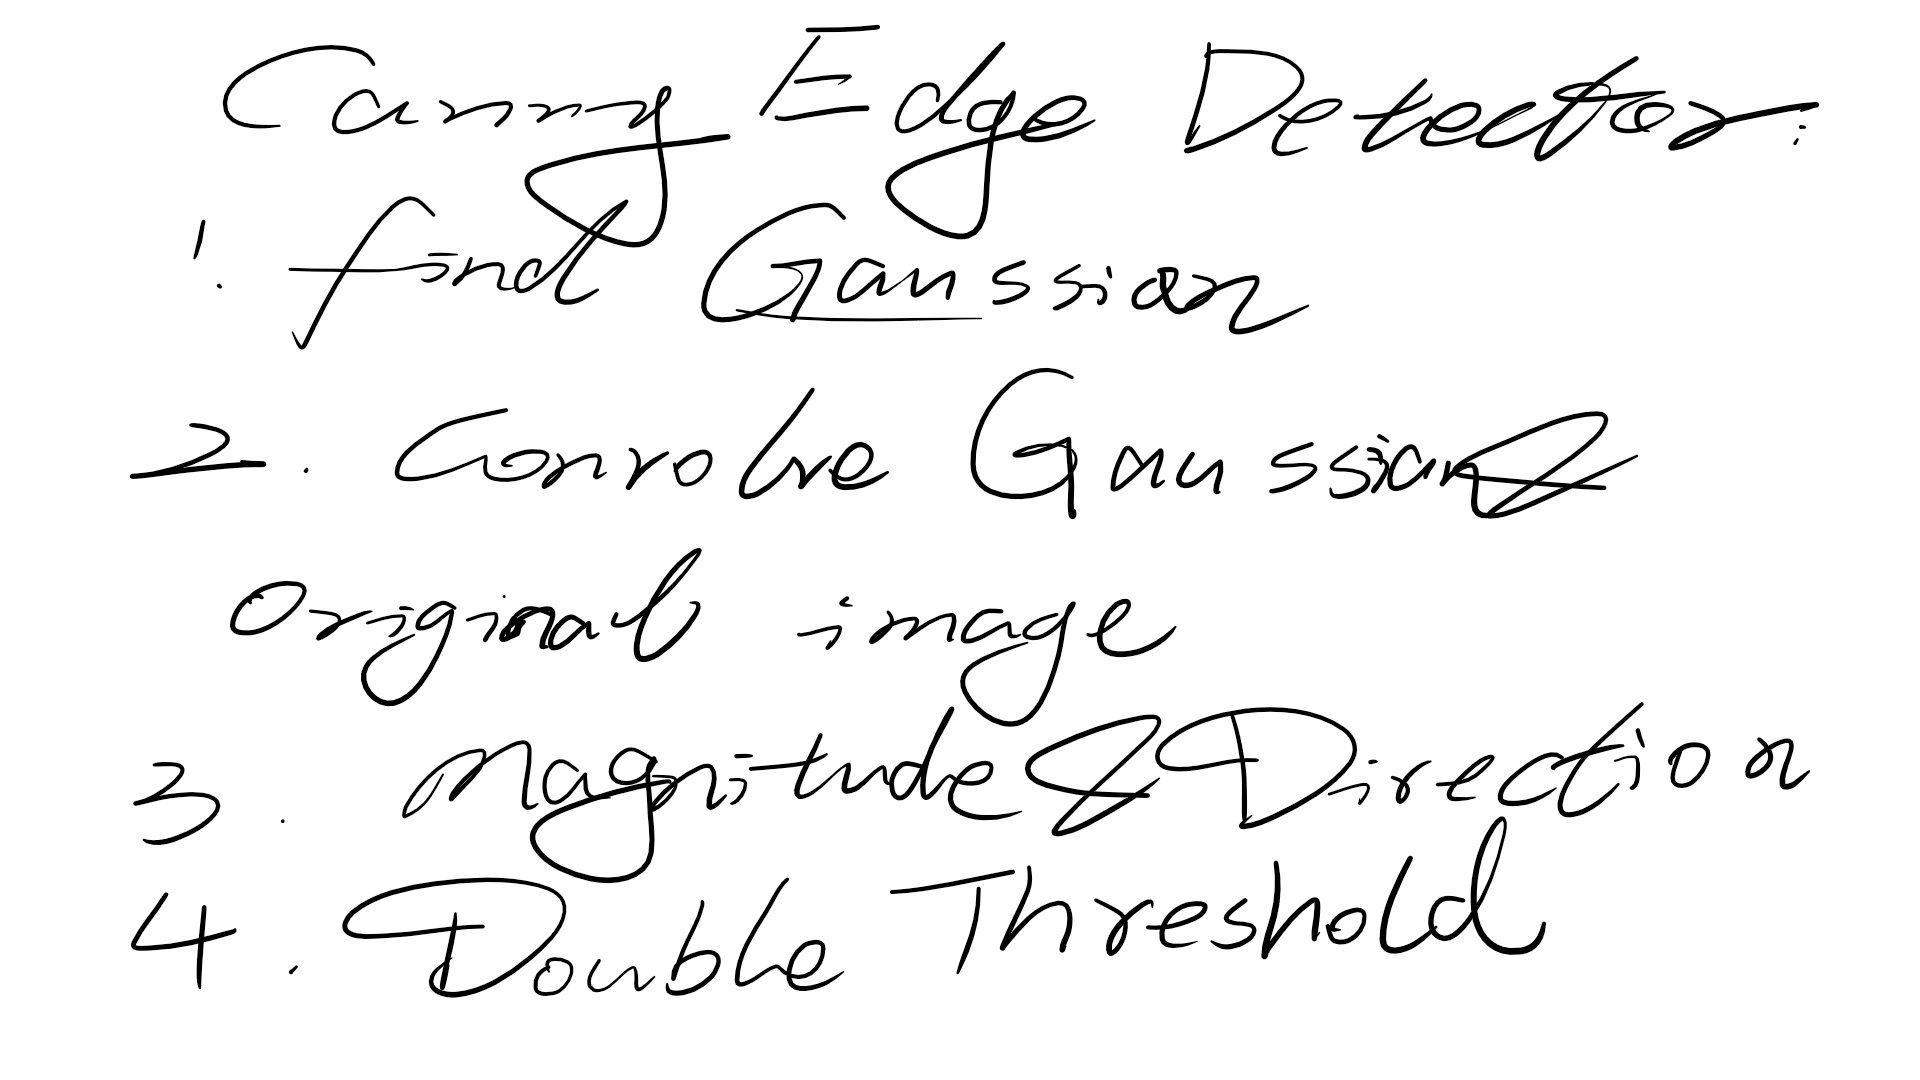 Canny Edge Detector:
1. find Gaussian
2. Convolve Gaussian &
Original image
3. Magnitude & Direction
4. Double Threshold